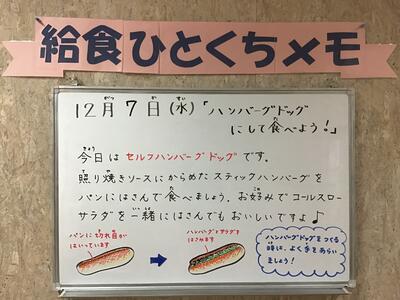 給食ひとくちメモ
12月7日(水)「ハンバーグドッグ
にして食べよう!」
今日はセルフハンバーグドッグです。
照り焼きソースにからめたスティックハンバーグを
パンにはさんで食べましょう。お好みでコールスロー
サラダを一緒にはさんでもおいしいですよ♪
パンに切れ目が
はいっています
ハンバーグとサラダを
はさみます
ハンバーグドッグをつくる
時は、よく手をあらい
ましょう!